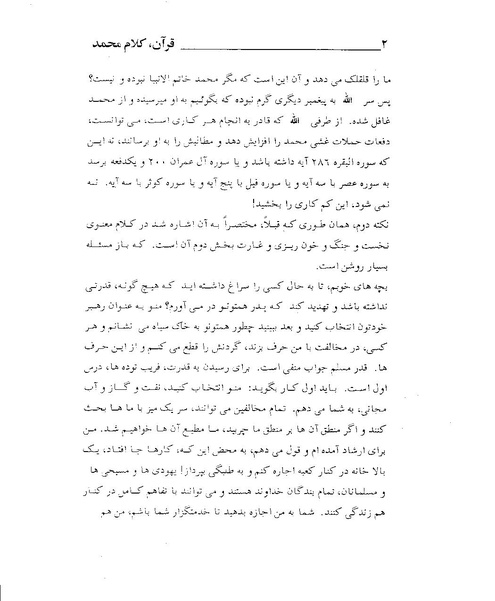 ۲ قرآن، کلام محمد
ما را قلقلک می دهد و آن این است که مگر محمد خاتم الانبیا نبوده و نیست؟
پس سر الله به پیغمبر دیگری گرم نبوده که بگوئیم به او میرسیده و از محمد
غافل شده. از طرفی الله که قادر به انجام هر کاری است، می توانست،
دفعات حملات غشی محمد را افزایش دهد و مطالبش را به او برساند، نه این
که سوره البقره ۲۸۶ آیه داشته باشد و یا سوره آل عمران ۲۰۰ و یکدفعه برسد
به سوره عصر با سه آیه و یا سوره فیل با پنج آیه و یا سوره کوثر با سه آیه. نه
نمی شود، این کم کاری را بخشید!
نکته دوم، همان طوری که قبلاً، مختصراً به آن اشاره شد در کلام معنوی
نخست و جنگ و خون ریزی و غارت بخش دوم آن است. که باز مسئله
بسیار روشن است.
بچه های خوبم، تا به حال کسی را سراغ داشته اید که هیچ گونه، قدرتی
نداشته باشد و تهدید کند که پدر همتونو در می آورم؟ منو به عنوان رهبر
خودتون انتخاب کنید و بعد ببینید چطور همتونو به خاک سیاه می نشانم و هر
کسی، در مخالفت با من حرف بزند، گردنش را قطع می کنم و از این حرف
ها. قدر مسلم جواب منفی است. برای رسیدن به قدرت، فریب توده ها، درس
اول است. باید اول کار بگوید: منو انتخاب کنید، نفت و گاز و آب
مجانی، به شما می دهم. تمام مخالفین می توانند، سر یک میز با ما ها بحث
کنند و اگر منطق آن ها بر منطق ما چربید، ما مطیع آن ها خواهیم شد. من
برای ارشاد آمده ام و قول می دهم، به محض این که، کارها جا افتاد، یک
بالا خانه در کنار کعبه اجاره کنم و به طلبگی بپردازم! یهودی ها و مسیحی ها
و مسلمانان، تمام بندگان خداوند هستند و می توانند با تفاهم کامل در کنار
هم زندگی کنند. شما به من اجازه بدهید تا خدمتگزار شما باشم، من هم